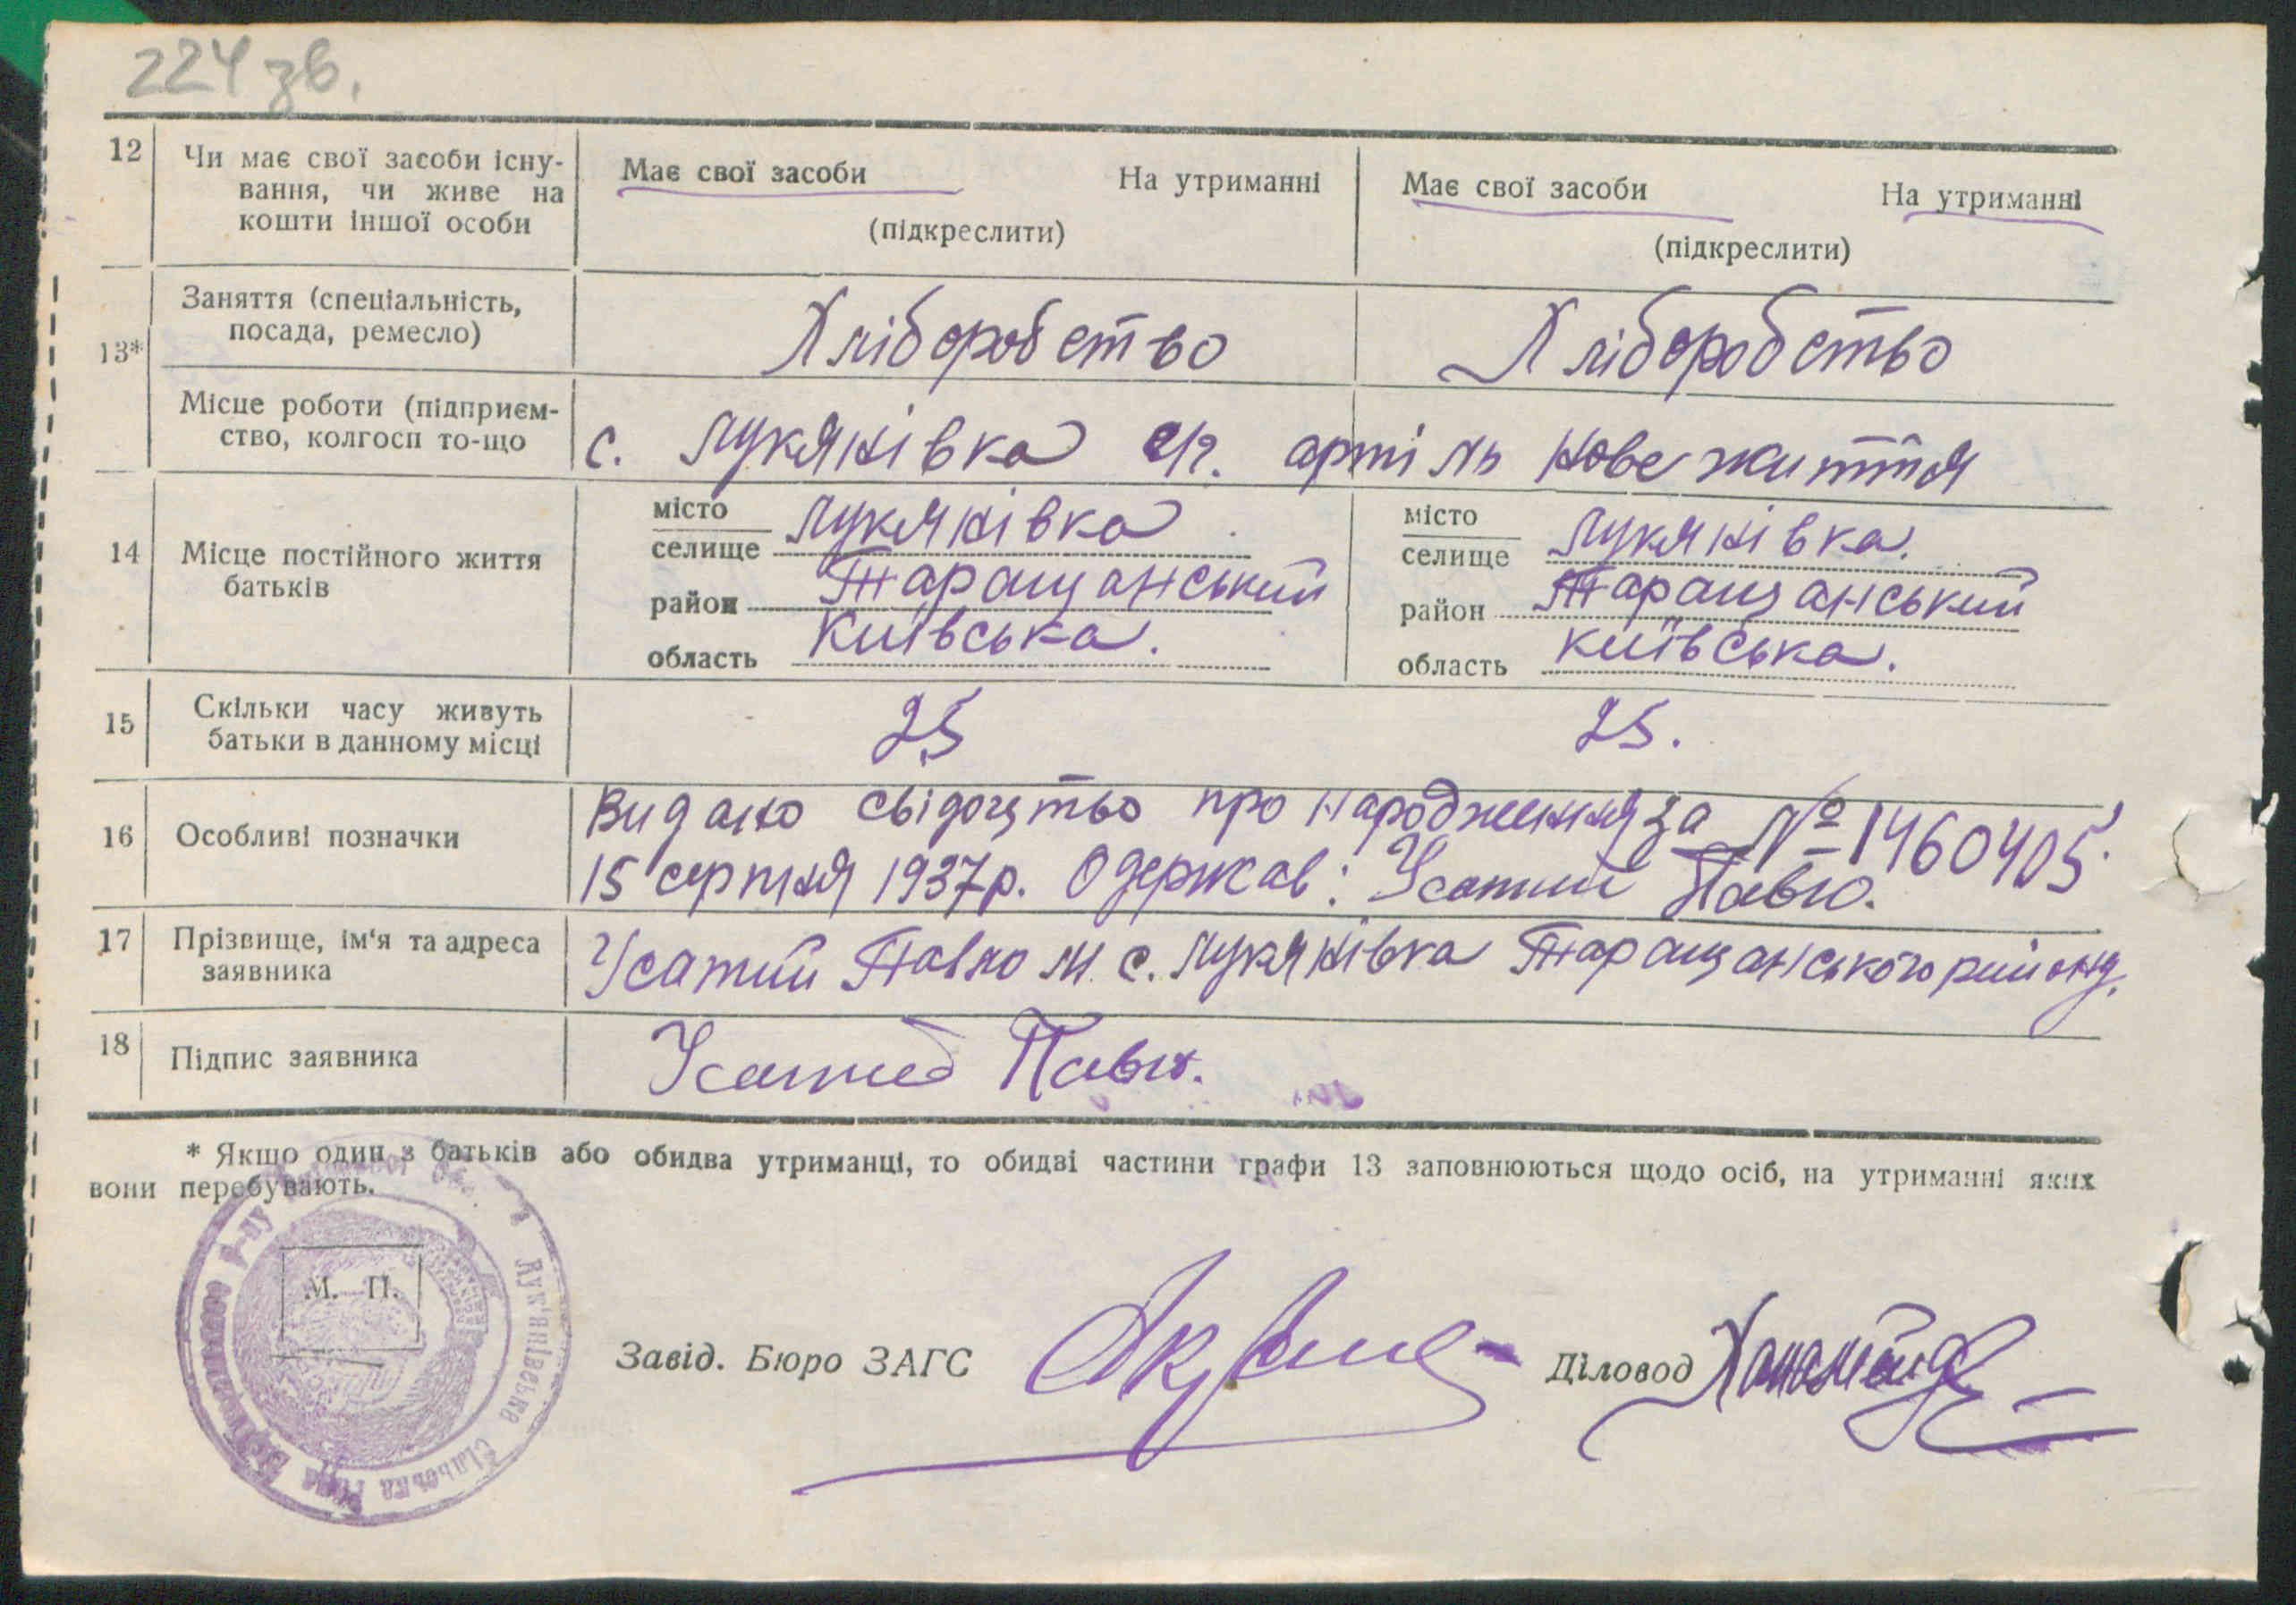 224 зв.
12 Чи має свої засоби існу- Має свої засоби На утриманні Має свої засоби На утриманні
вання, чи живе на
кошти іншої особи (підкреслити) (підкреслити)
Заняття (спеціальність,
посада, ремесло) Хліборобство Хліборобство
13*
Місце роботи (підприєм-
ство, колгосп то-що с. Лукянівка с/г. артіль Нове життя
14 Місце постійного життя
батьків
місто
селище Лукянівка
район Таращанський
область Київська.
місто
селище Лукянівка.
район Таращанський
область Київська.
15 Скільки часу живуть
батьки в данному місці 25 25.
16 Особливі позначки Видано свідоцтво про народження за № 1460405.
15 серпня 1937р. Одержав: Усатий Павло.
17 Прізвище, ім'я та адреса
заявника Усатий Павло М. с. Лукянівка Таращанського району.
18 Підпис заявника Усатий Павло.
* Якщо один з батьків або обидва утриманці, то обидві частини графи 13 заповнюються щодо осіб, на утриманні яких
вони перебувають.
М. П.
Лук'янівська Сільська Рада
Завід. Бюро ЗАГС Діловод